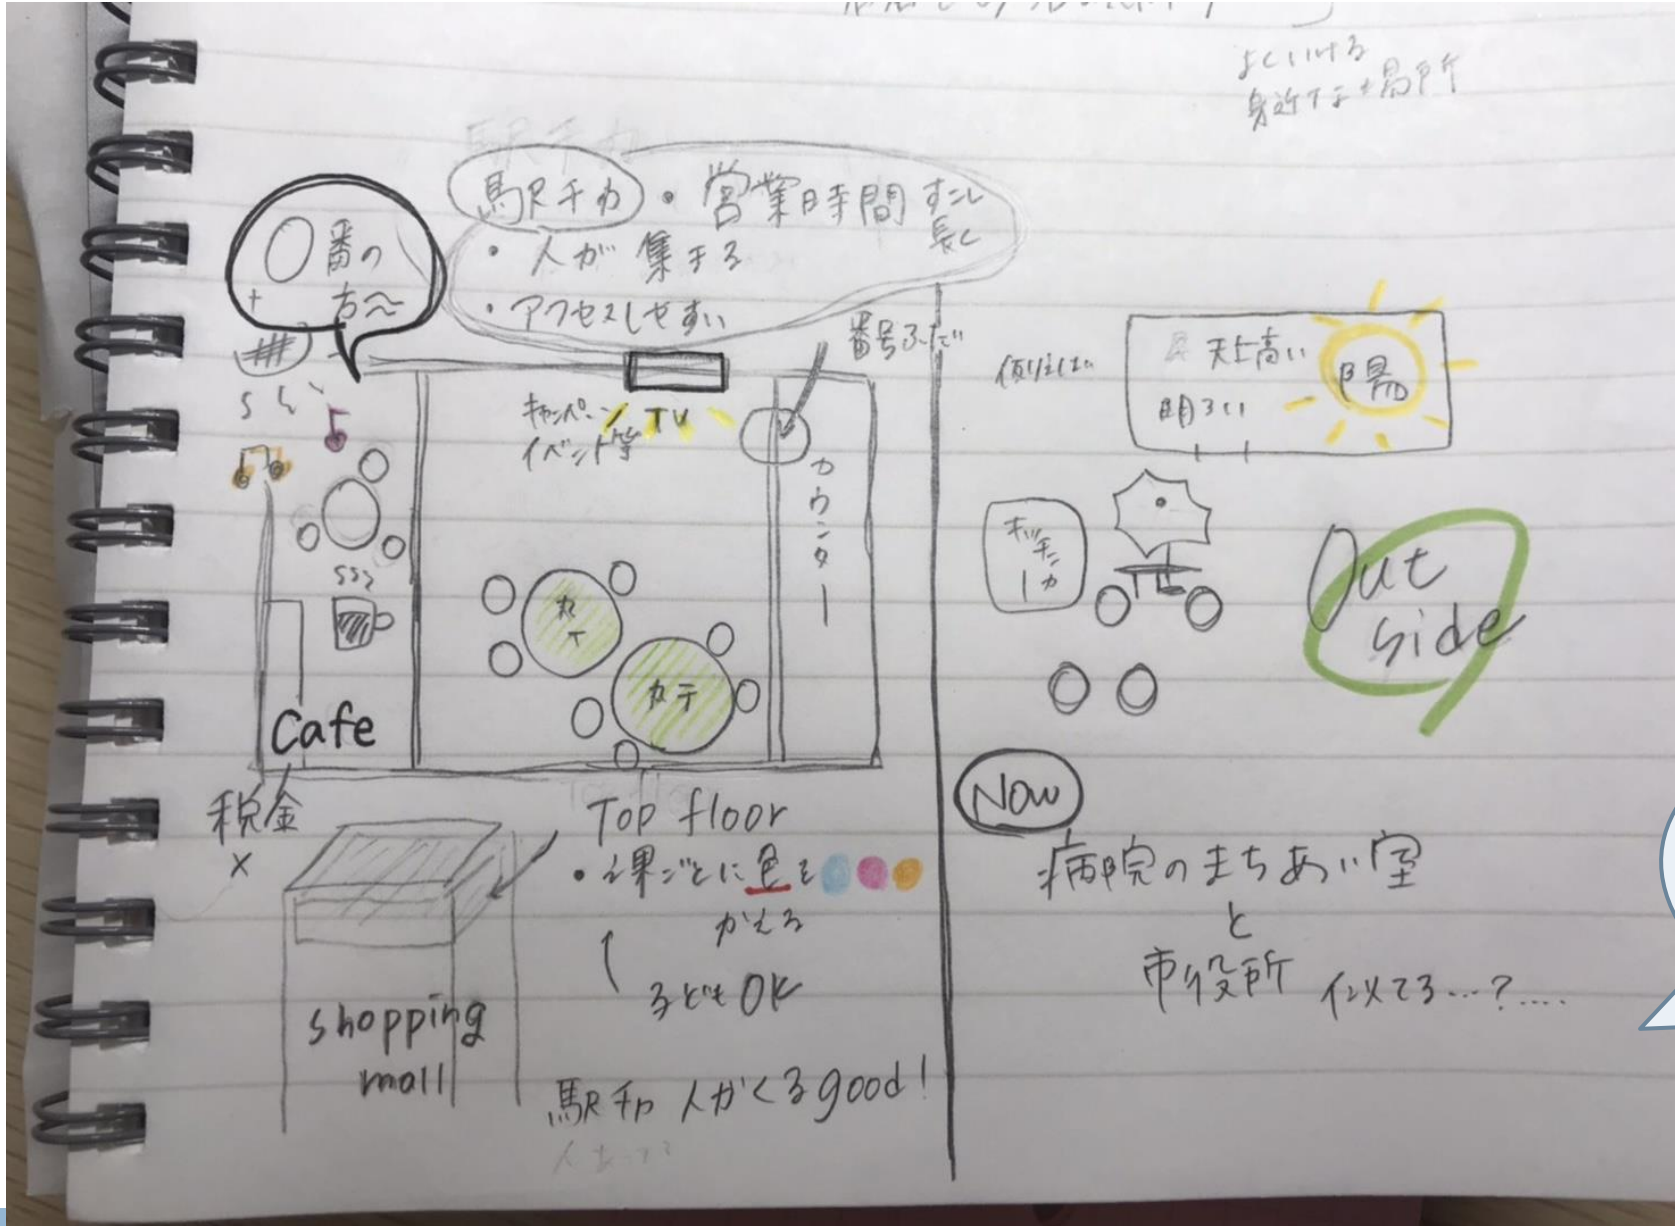 よくいける
身近な場所
駅チカ
・営業時間 すこし
長く
・人が集まる
・アクセスしやすい
〇番の
方〜
番号ふだ
キャンペーン
イベント等
TV
カウンター
Cafe
税金
×
Top floor
・課ごとに色を
かえる
子どもOK
shopping
mall
駅チカ 人がくるgood!
例えば
天上高い
明るい
陽
キッチンカー
Out
side
Now
病院のまちあい室
と
市役所 似てる…?....